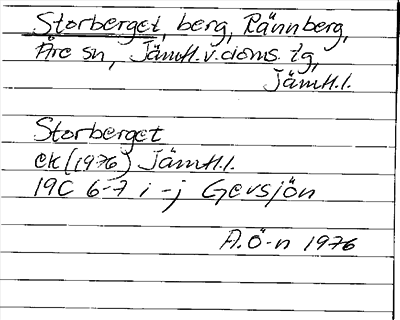 Storberget, berg, Rännberg,
Åre sn, Jämtl.v.doms. tg,
Jämtl.l.
Storberget
ek (1976) Jämtl.l.
19C 6-7 i-j Gevsjön
A.Ö-n 1976